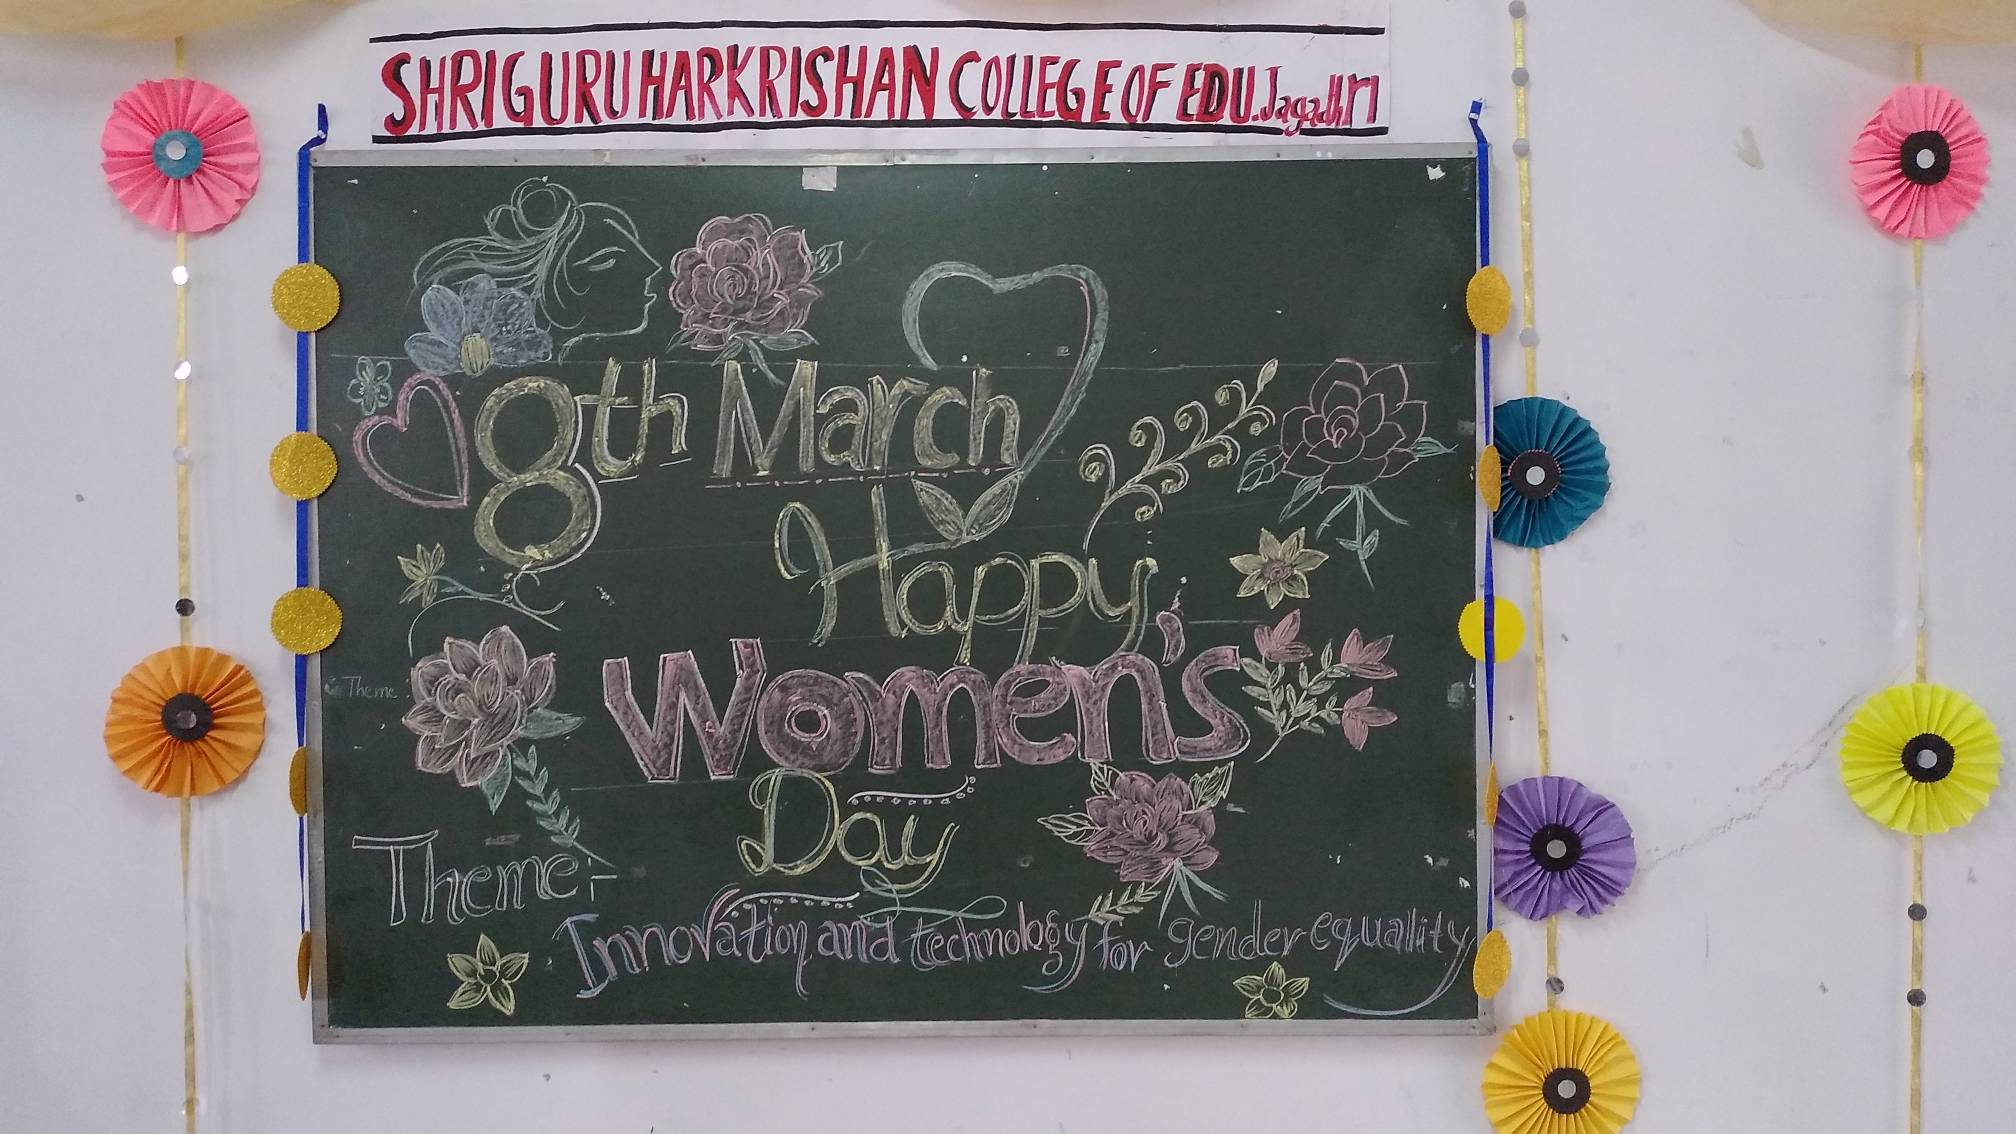 SHRI GURU HARKRISHAN COLLEGE OF EDU. Jagadhri
8th March
Happy
Women's
Theme
Day
Theme:-
Innovation and technology for gender equallity